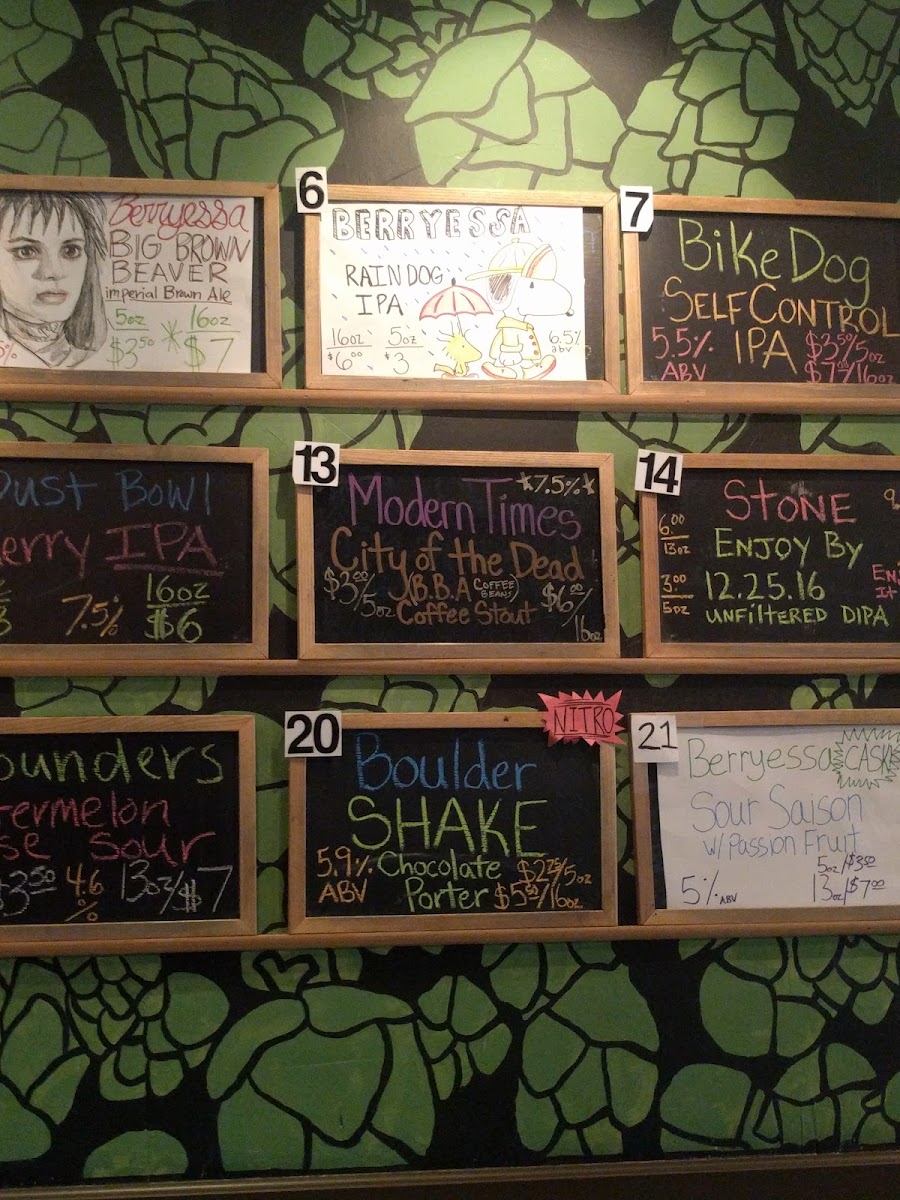 Berryessa
BIG BROWN
BEAVER
imperial Brown Ale
5oz * 16oz
$3⁵⁰ $7
6
BERRYESSA
RAIN DOG
IPA
16oz 5oz 6.5%
$6⁰⁰ $3 abv
7
Bike Dog
SELF CONTROL
5.5% IPA $3⁵⁰/5oz
ABV $7⁰⁰/16oz
Dust Bowl
erry IPA
7.5% 16oz
$6
13
*7.5%*
Modern Times
City of the Dead
$3⁰⁰/5oz (B.B.A COFFEE BEANS) $6⁰⁰/16oz
Coffee Stout
14
STONE
6.00 ENJOY BY
13oz
3.00 12.25.16
5oz UNFILTERED DIPA
ounders
termelon
se Sour
$3⁵⁰ 4.6% 13oz/$7
20
NITRO
Boulder
SHAKE
5.9% Chocolate $2²⁵/5oz
ABV Porter $5⁵⁰/16oz
21
Berryessa CASK
Sour Saison
w/ Passion Fruit
5oz/$3⁵⁰
5% ABV 13oz/$7⁰⁰